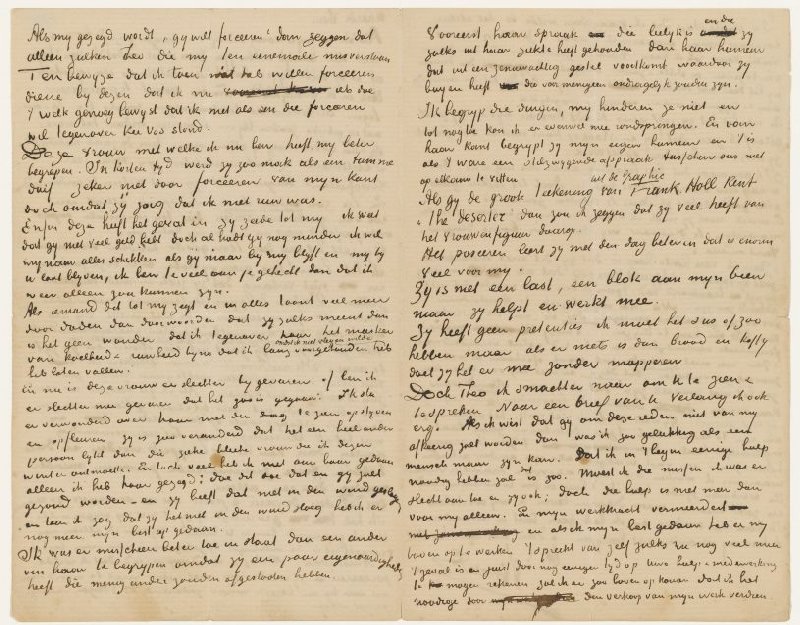 Als my gezegd wordt "gy wilt forceeren" dan zeggen dat
alleen zulken Theo die my ten eenemale misverstaan
Ten bewyze dat ik toen niet heb willen forceeren
diene by dezen dat ik me als die
't welk genoeg bewyst dat ik niet als een die forceeren
wil tegenover Kee Vos stond.
Deze vrouw met welke ik nu ben heeft my beter
begrepen. In korten tyd werd zy zoo mak als een tamme
duif zeker niet door forceeren van myn kant
doch omdat zy zag dat ik niet ruw was.
Enfin deze heeft het gevat en zy zeide tot my ik weet
dat gy niet veel geld hebt doch al hadt gy nog minder ik wil
my naar alles schikken als gy maar by my blyft en my by
u laat blyven, ik ben te veel aan je gehecht dan dat ik
weer alleen zou kunnen zyn.
Als iemand dat tot my zegt en in alles toont veel meer
door daden dan door woorden dat zy zulks meent dan
is het geen wonder dat ik tegenover haar het masker
van koelheid & ruwheid byna dat ik lang voorgehouden heb
omdat ik niet vleyen wilde
heb laten vallen.
En nu is deze vrouw er slechter by gevaren of ben ik
er slechter mee gevaren dat het zoo is gegaan? Ik sta
er verwonderd over haar met den dag te zien opklaren
en opfleuren, zy is zoo veranderd dat het een heel ander
persoon lykt dan die zieke bleeke vrouw die ik dezen
winter ontmoette. En toch veel heb ik niet aan haar gedaan
alleen ik heb haar gezegd; doe dit doe dat en gy zult
gezond worden – en zy heeft dat niet in den wind geslagen
en toen ik zag dat zy het niet in den wind sloeg heb ik er
nog meer myn best op gedaan.
Ik was er misschien beter toe in staat dan een ander
om haar te begrypen omdat zy een paar eigenaardigheden
heeft die menig ander zouden afgestooten hebben.
Vooreerst haar spraak die leelyk is en die zy
zulks uit haar ziekte heeft gehouden dan haar humeur
dat uit een zenuwachtig gestel voortkomt waardoor zy
buyen heeft die voor menigeen ondragelyk zouden zyn.
Ik begryp die dingen, my hinderen ze niet en
tot nog toe kon ik er evenwel mee rondspringen. En van
haar kant begrypt zy myn eigen humeur en 't is
als 't ware een stilzwygende afspraak tusschen ons niet
op elkaar te vitten.
Als gy de groote teekening van Frank Holl kent
uit de Graphic
"The deserter" dan zou ik zeggen dat zy veel heeft van
het vrouwenfiguur daarop.
Het poseeren leert zy met den dag beter en dat is enorm
veel voor my.
Zy is niet een last, een blok aan myn been
maar zy helpt en werkt mee.
Zy heeft geen pretenties ik moet het zus of zoo
hebben maar als er niets is dan brood en koffy
doet zy het er mee zonder mopperen
Doch Theo ik smacht er naar om U te zien &
te spreken Naar een brief van U verlang ik ook
erg. Als ik wist dat gy om deze reden niet van my
afkeerig zult worden dan was ik zoo gelukkig als een
mensch maar zyn kan. Dat ik in 't begin eenige hulp
noodig hebben zal is zoo. Moest ik die missen ik was er
slecht aan toe en zy ook; doch die hulp is niet meer dan
voor my alleen. En myn werkkracht vermeerdert
en als ik myn best gedaan heb er my
boven op te werken 't spreekt van zelf zulks nu nog veel meer
't geval is en juist door nog eenigen tyd op Uwe hulp & medewerking
te mogen rekenen zal ik er zoo boven op komen dat ik het
noodige door den verkoop van myn werk verdien.